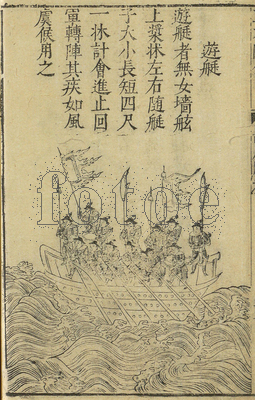 遊艇
遊艇者無女墻舷
上槳牀左右隨艇
子大小長短四尺
一牀計會進止回
軍轉陣其疾如風
虞候用之
fotoe